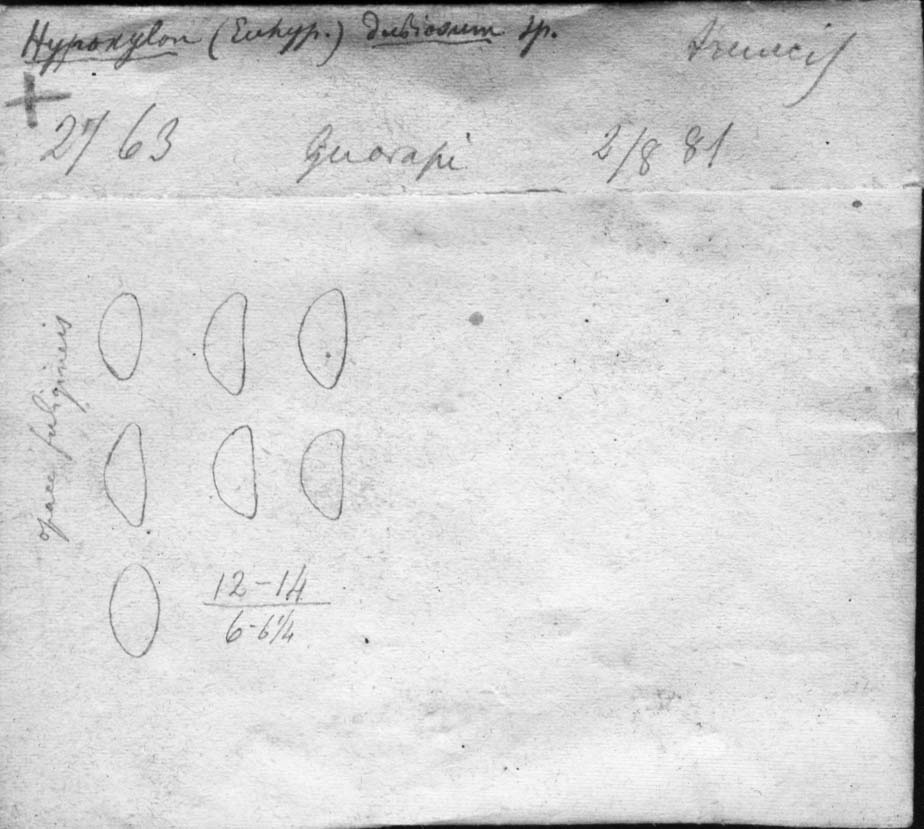 Hypoxylon (Euhyp.) dubiosum Sp.
+
2763 Guarapi 2/8 81
opace fuligineis
12-14
6-6¼